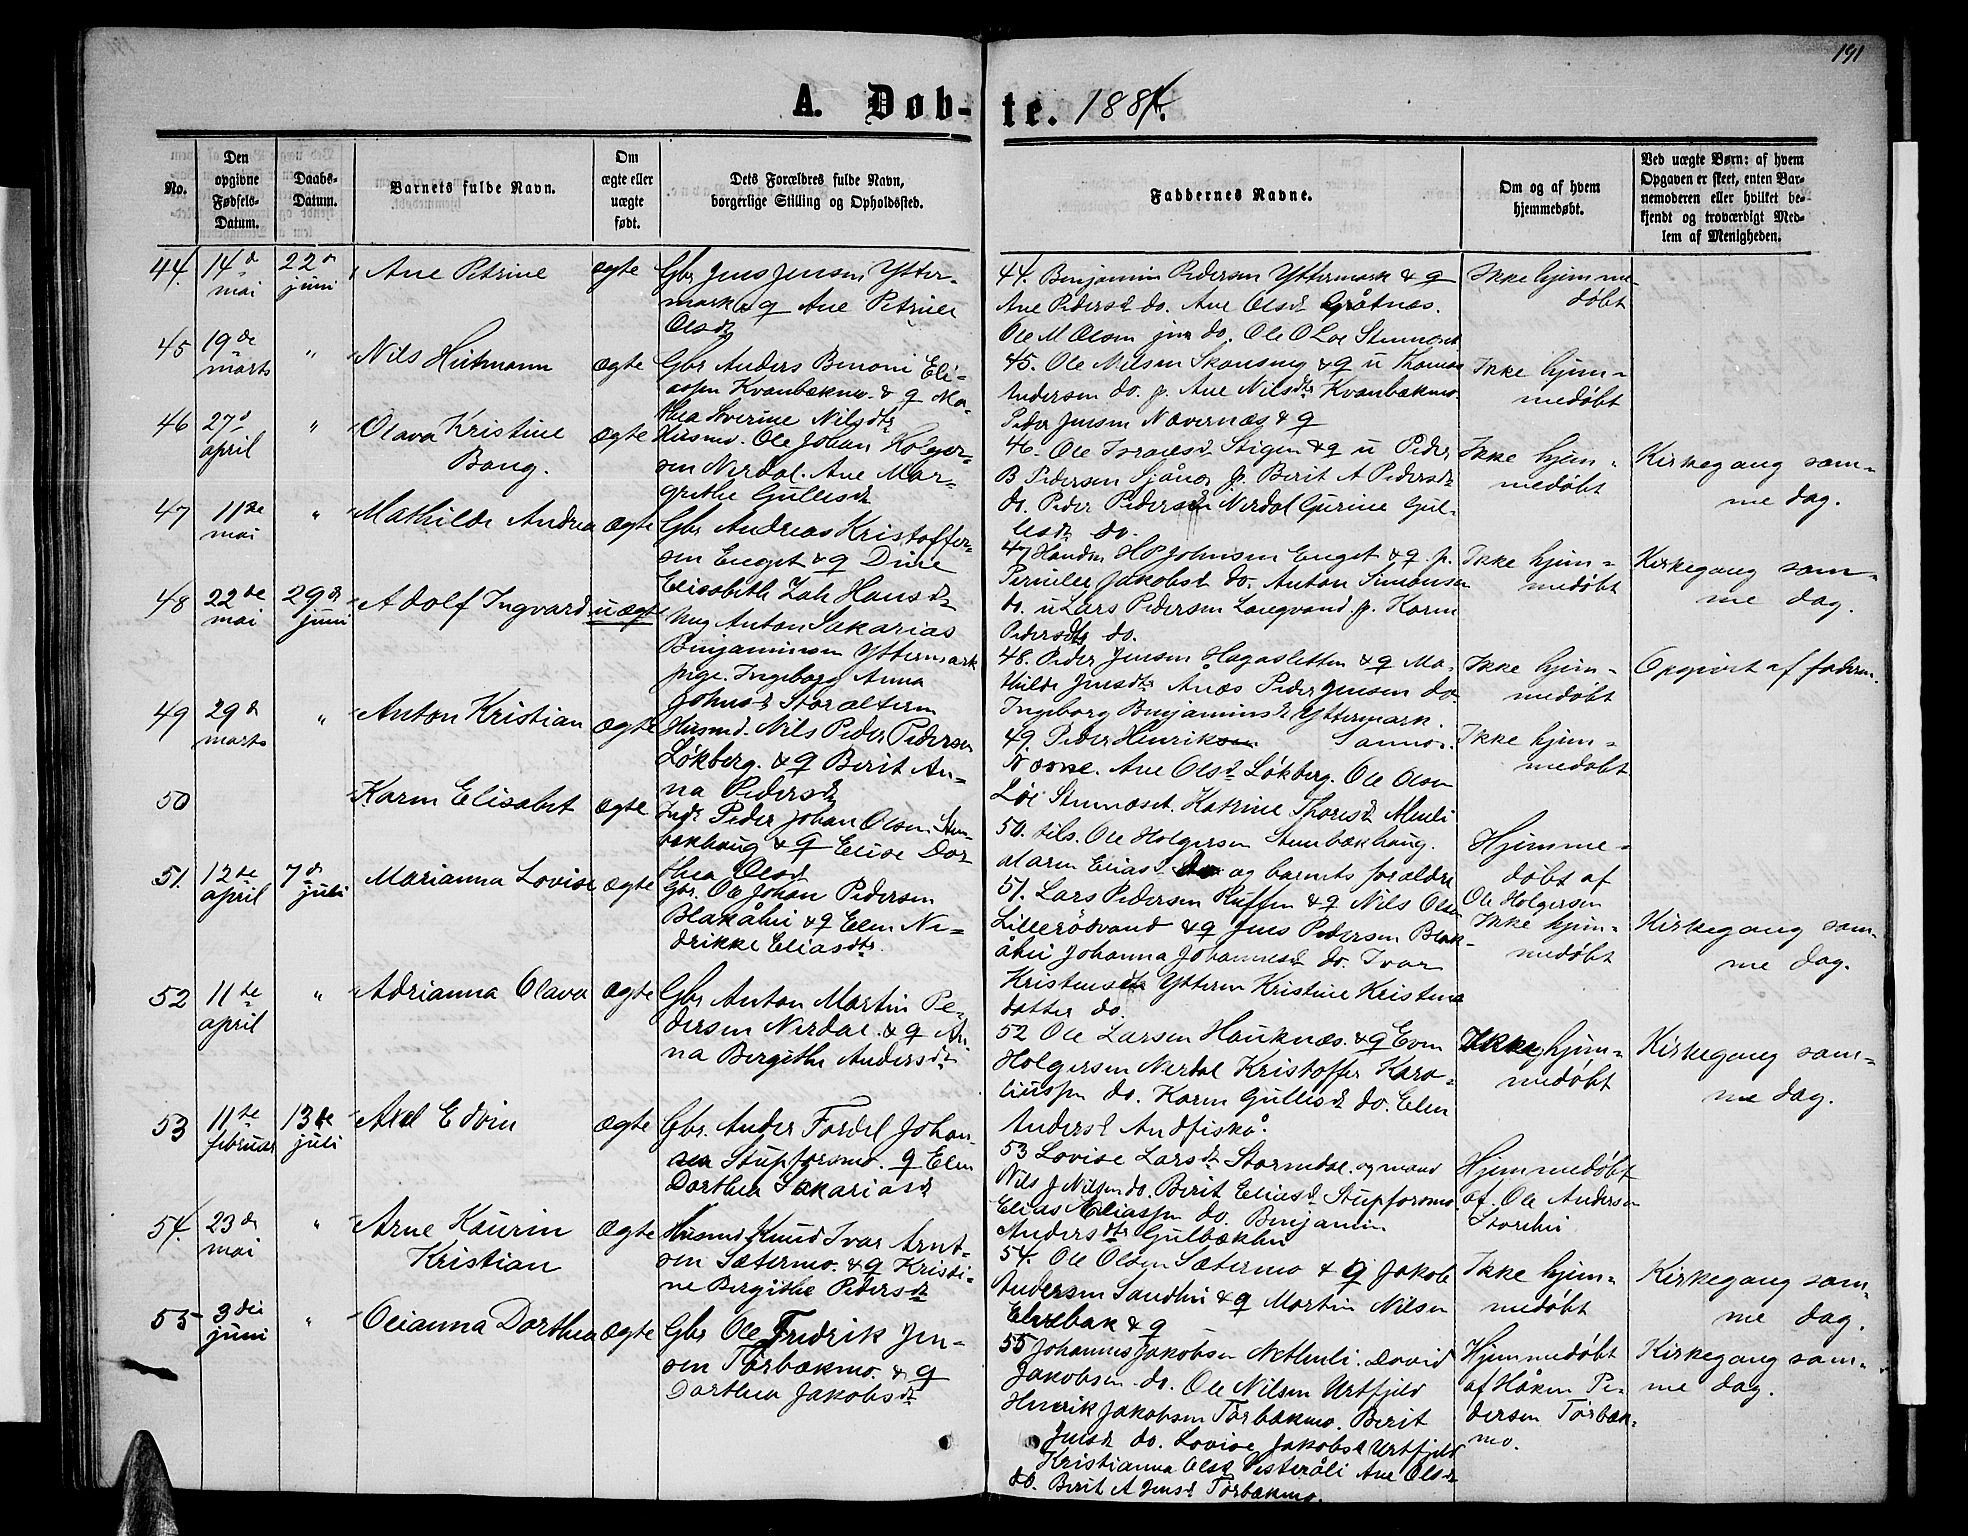 191
A. Døb-te. 1884.
No.
Den opgivne Fødsels-Datum.
Daabs-Datum.
Barnets fulde Navn.
Om ægte eller uægte født.
Dets Forældres fulde Navn, borgerlige Stilling og Opholdssted.
Faddernes Navne.
Om og af hvem hjemmedøbt.
Ved uægte Børn: af hvem Opgaven er skeet, enten Barnemoderen eller hvilket bekjendt og troværdigt Medlem af Menigheden.
44. 14d mai
22d juni
Ane Petrine
egte
Gbr Jens Jensen Ytter-
mark & q Ane Petrine
Olsdr
44. Benjamin Pedersen Yttermark & q
Ane Pedersd do. Ane Olsdr Gråtnæs.
Ole M Olsen jun do. Ole O Løe Stennæset
Ikke hjemme-
døbt
45 19de marts
"
Nils Hutmann
ægte
Gbr Anders Benoni Eli-
assen Kvanbækmo. & q Ma-
thea Severine Nilsdtr
45. Ole Nilsen Skonseng & q u Thomas
Andersen do. p. Ane Nilsdtr Kvanbækmo.
Peder Jensen Nævernæs & q
Ikke hjem-
medøbt
46 27d april
"
Olava Kristine
Bang.
ægte
Husmd. Ole Johan Holger-
sen Nerdal. Ane Mar-
grethe Gullesdr
46. Ole Israelsd Stigen & q u Peder
B Pedersen Sjånes p. Berit A Pedersdr
do. Peder Pedersen Nerdal Gurine Gul-
lesdr do.
Ikke hjem-
medøbt
Kirkegang sam-
me dag.
47 11te mai
"
Mathilde Andrea
ægte
Gbr Andreas Kristoffer-
sen Enget & q Dine
Elisabeth Zah Hansdr
47 Handm HP Johnsen Enget & q. p.
Pernille Jakobsd do. Anton Simonsen
do. u Lars Pedersen Langvand. p. Karen
Pedersdtr do.
Ikke hjem-
medøbt
Kirkegang sam-
me dag.
48 22de mai
29d juni
Adolf Ingvard
uægte
Ung Anton Sakarias
Benjaminsen Yttermark
pige. Ingeborg Anna
Johnsd Storalteren
48. Peder Jensen Hagasletten & q Ma-
thilde Jensdtr Ånæs Peder Jensen do.
Ingeborg Benjaminsd Yttermark.
Ikke hjem-
medøbt
Opgivet af faderen.
49 29d marts
"
Anton Kristian
ægte
Husmd. Nils Peder Pedersen
Løkberg. & q Berit An-
na Pedersdr
49. Peder Henriksen Sannes.
Ane Olsd Løkberg. Ole Olsen
Løe Stennæset. Katrine Thoresd Almli
Ikke hjem-
medøbt
50
Karen Elisabet
ægte
Indr Peder Johan Olsen Sten-
bækhaug & q Elise Dor-
thea Olsdr
50. tils. Ole Holgersen Stenbækhaug.
Maren Eliasd. do og barnets forældre
Hjemme-
døbt af
Ole Holgersen
51. 12te april
7d juli
Marianna Lovise
ægte
Gbr. Ole Johan Pedersen
Blakåhei & q Elen Ne-
drikke Eliasdtr.
51. Lars Pedersen Ruffen & q Nils Olsen
Lillerødvand & q Jens Pedersen Blak-
åhei Johanna Johannesd do. Ivar
Kristensen Ytteren Kristine Kristens
datter do.
Ikke hjem-
medøbt
Kirkegang sam-
me dag.
52 11te april
"
Adrianna Olava
ægte
Gbr Anton Martin Pe-
dersen Nerdal. & q An-
na Bergithe Andersdr
52 Ole Larsen Hauknæs. & q Even
Holgersen Nerdal Kristoffer Karo-
liussen do. Karen Gullesdr do. Elen
Andersd Andfiskå.
Ikke hjem-
medøbt
Kirkegang sam-
me dag.
53 11te februar
13de juli
Axel Edvin
ægte
Gbr. Ander Fordel Johan-
sen Stupforsmo. q Elen
Dorthea Sakariasd
53 Lovise Larsdr Stormdal. og mand
Nils J Nilsen do. Berit Eliasd Stupforsmo
Elias Eliassen do. Benjamin
Andersdtr Gulbækhei
Hjemmedøbt
af. Ole Andersen
Storehei
54. 23de mai
"
Arne Kaurin
Kristian
ægte
Husmd Knud Ivar Arnt-
sen Sætermo. & q Kristi-
ne Bergithe Pedersdr
54. Ole Olsen Sætermo & q Jakob
Andersen Sandhei & q Martin Nilsen
Elvebak & q
Ikke hjem-
medøbt
Kirkegang sam-
me dag.
55 3die juni
"
Oleianna Dorthea
ægte
Gbr Ole Fredrik Jen-
sen Tørbækmo. & q
Dorthea Jakobsdr
55 Johannes Jakobsen N Almli. David
Jakobsen do. Ole Nilsen Urtfjeld
Henrik Jakobsen Tørbækmo. Berit
Jensd do. Lovise Jakobsd Urtfjeld
Kristianna Olsd Vesteråli Ane Olsdr
do. Berit A Jensd Tørbækmo.
Hjemmedøbt
af Håken Pe-
dersen Tørbæk-
mo.
Kirkegang sam-
me dag.